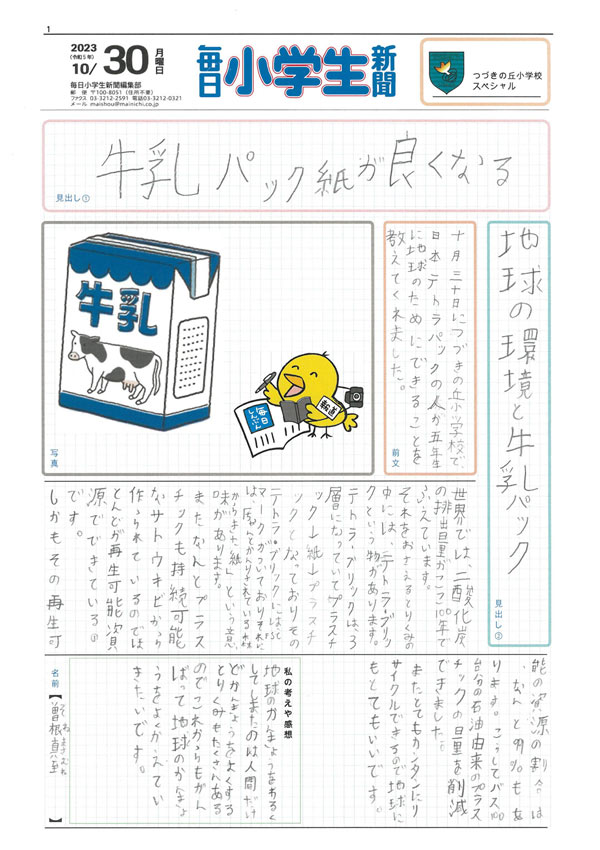 1
2023
(令和5年)
10/30 月曜日
毎日小学生新聞編集部
郵 便 〒100-8051（住所不要）
ファクス 03-3212-2591 電話03-3212-0321
メール maishou@mainichi.co.jp
毎日小学生新聞
つづきの丘小学校
スペシャル
牛乳パック紙が良くなる
見出し①
地球の環境と牛乳パック
見出し②
十月三十日につづきの丘小学校で、
日本テトラパックの人が五年生
に地球のためにできることを
教えてくれました。
前文
牛乳
毎日
しんぶん
報道
写真
世界では、二酸化炭
の排出量がここ100年で
ふえています。
それをおさえるとりくみの
中には、テトラ・ブリッ
クという物があります。
テトラ・ブリックは、ろ
層になっていてプラスチ
ック↓紙↓プラスチ
ックとなっておりその
テトラ・ブリックには
マークがついておりそれに
からできた紙」という意
味があります。
またなんとプラス
チックも持続可能
なサトウキビから
作られているのでほ
とんどが再生可能資
源でできている
です。
しかもその再生可
能の資源の割合は
、なんと
ります。こうしてバス100
台分の石油由来のプラス
チックの量を削減
できました。
またとてもカンタンにリ
サイクルできるので地球に
もとてもいいです。
私の考えや感想
地球のかんきょうをわるく
してしまたのは人間だけ
どかんきょうをよくする
とりくみもたくさんある
のでこれからもがん
ばって地球のかんきょ
うをよくかえてい
きたいです。
名前【曽根真至】